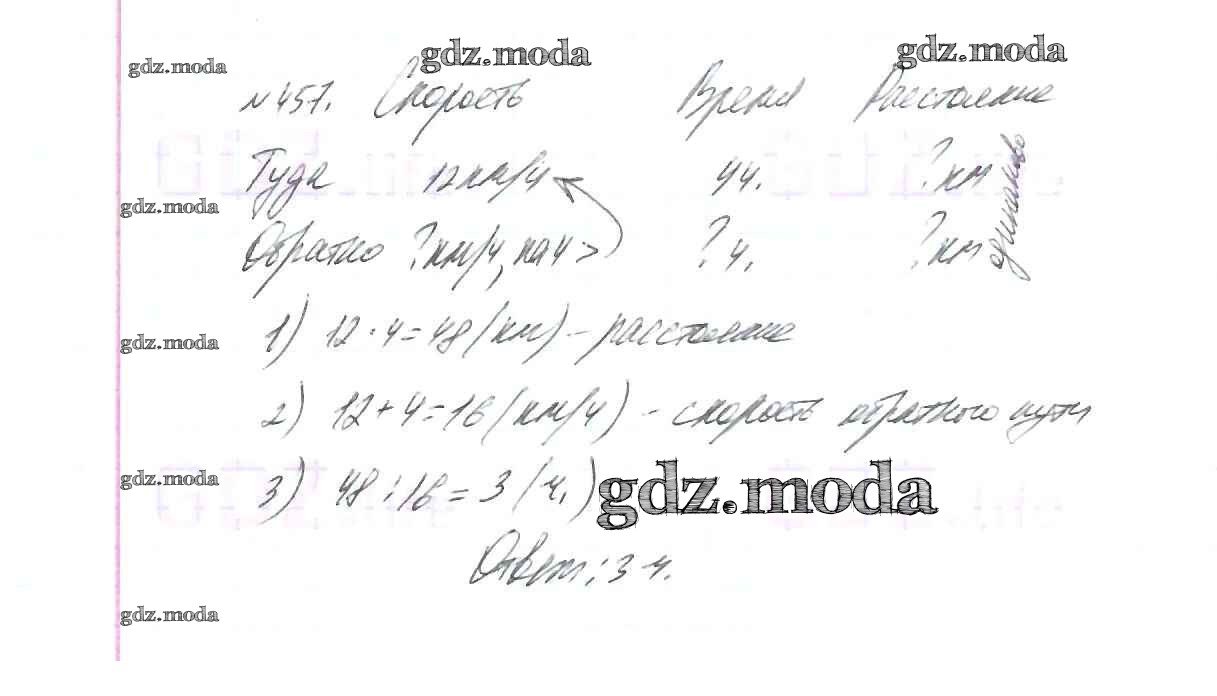 gdz.moda gdz.moda gdz.moda
№457. Скорость Время Расстояние
Туда 12км/ч 4ч. ?км
gdz.moda
Обратно ?км/ч, на 4 > ?ч. ?км
одинаково
1) 12·4=48(км) - расстояние
gdz.moda
2) 12+4=16(км/ч) - скорость обратного пути
3) 48:16=3(ч.)
gdz.moda gdz.moda
Ответ: 3 ч.
gdz.moda